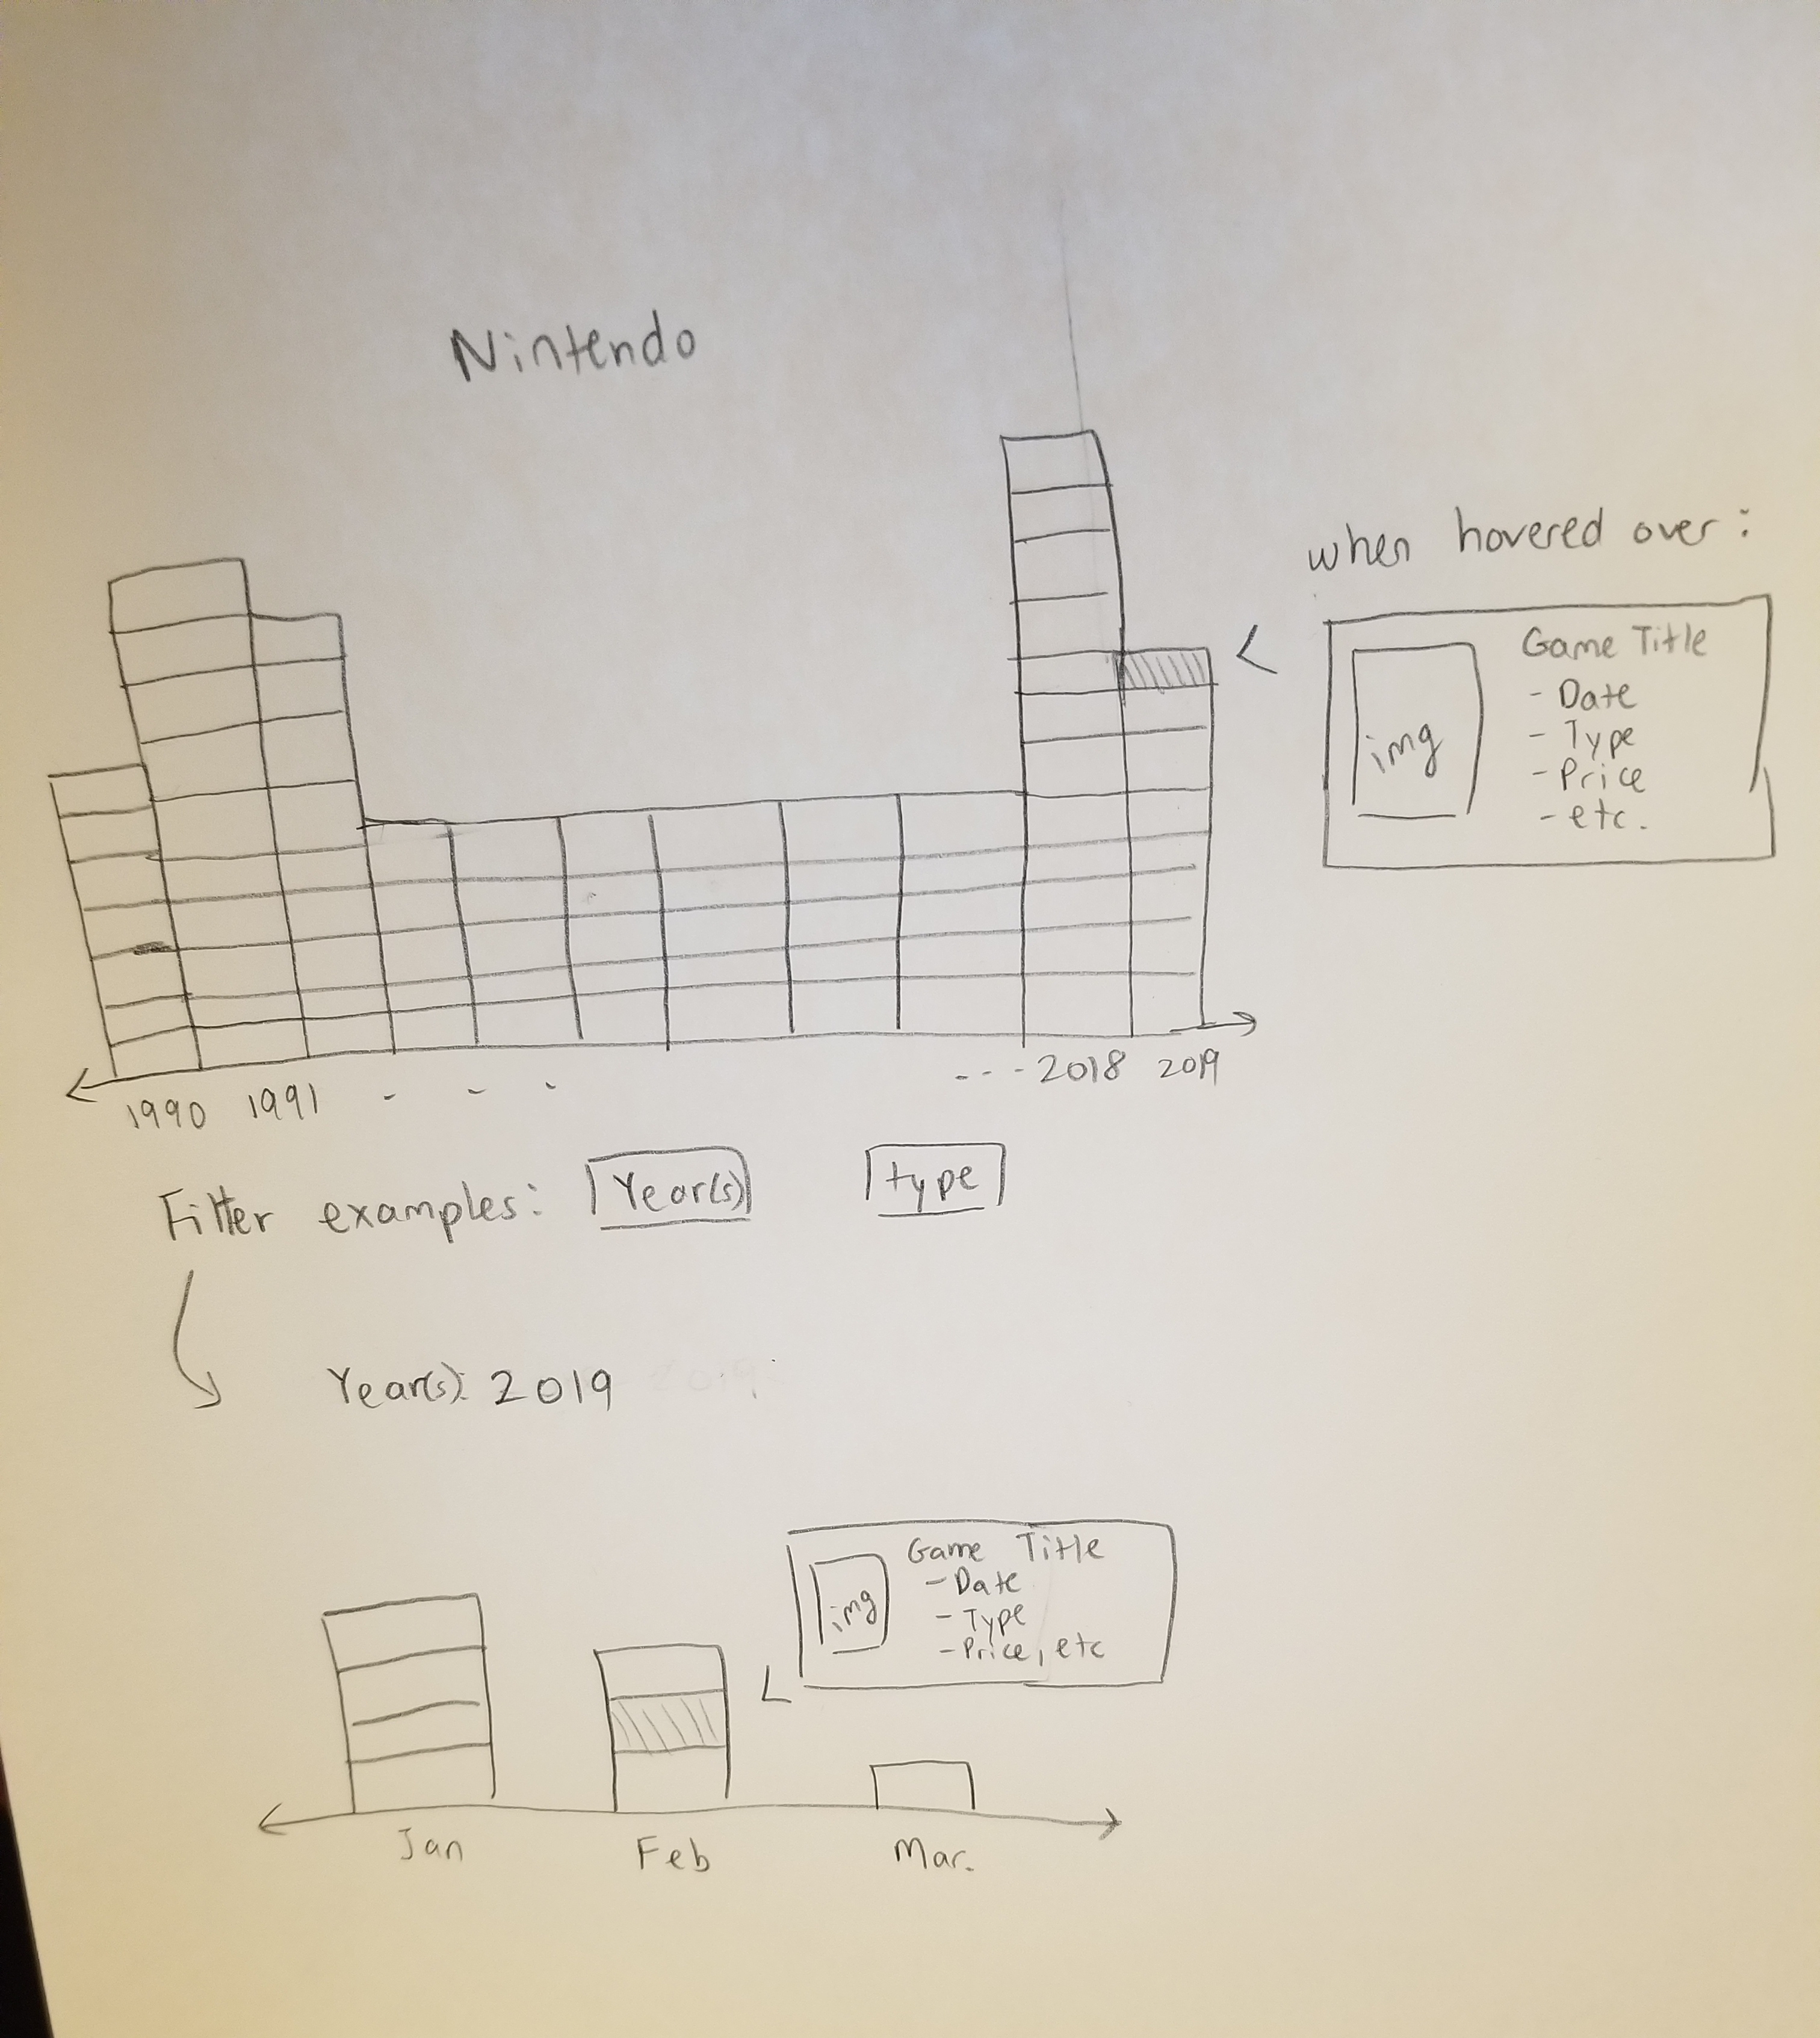 Nintendo
when hovered over:
Game Title
- Date
- Type
- Price
- etc.
img
1990 1991 - - - - - - 2018 2019
Filter examples: Year(s) type
Year(s): 2019
Game Title
- Date
- Type
- Price, etc
img
Jan Feb Mar.